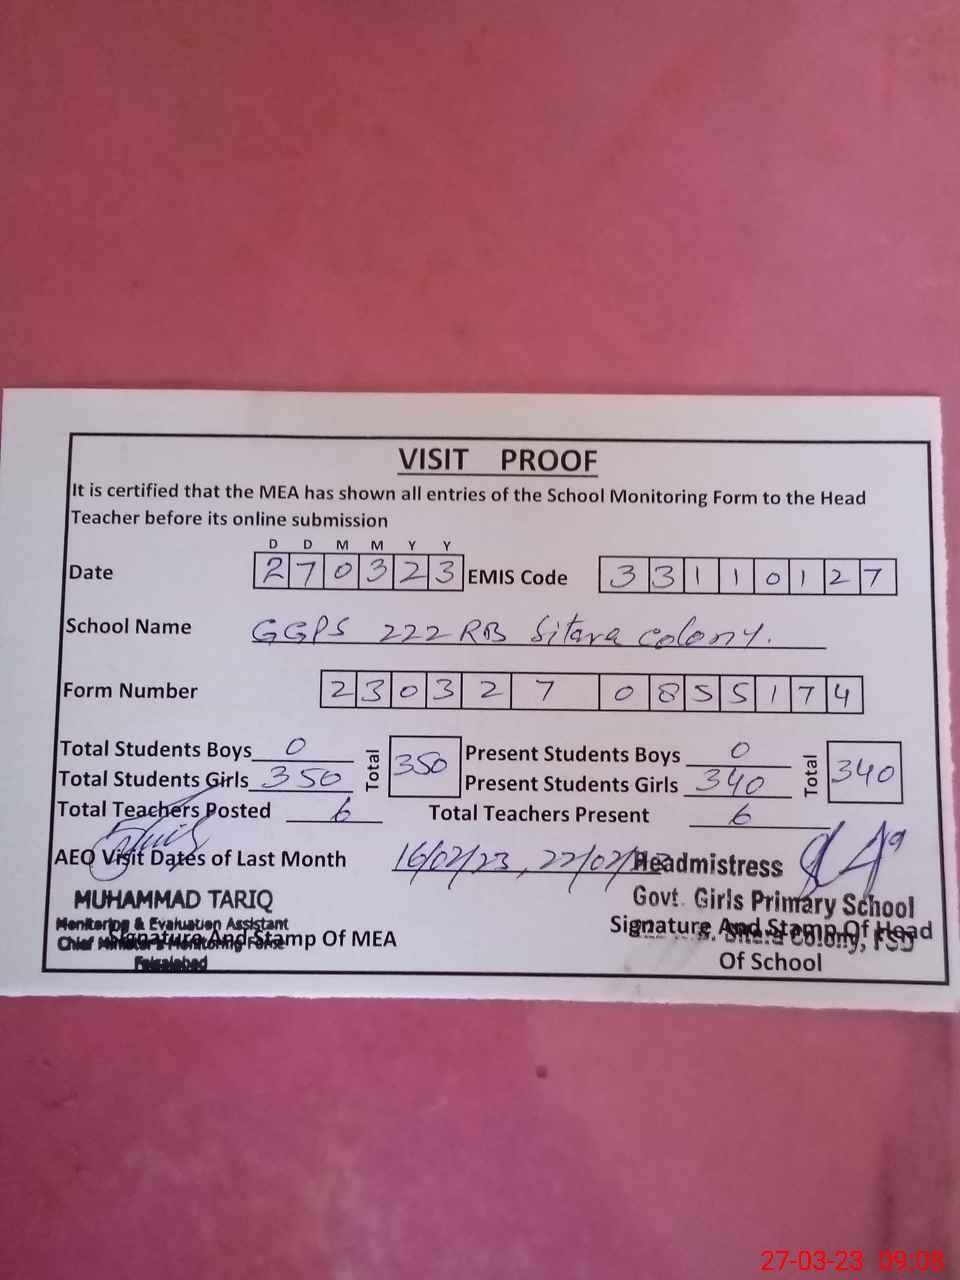 VISIT PROOF
It is certified that the MEA has shown all entries of the School Monitoring Form to the Head
Teacher before its online submission
D D M M Y Y
Date 2 7 0 3 2 3 EMIS Code 3 3 1 1 0 1 2 7
School Name GGPS 222 RB Sitara Colony.
Form Number 2 3 0 3 2 7 0 8 5 5 1 7 4
Total Students Boys 0 Total 350 Present Students Boys 0 Total 340
Total Students Girls 350 Present Students Girls 340
Total Teachers Posted 6 Total Teachers Present 6
AEO Visit Dates of Last Month 16/02/23, 22/02/23 Headmistress
MUHAMMAD TARIQ Govt. Girls Primary School
Monitoring & Evaluation Assistant
Signature And Stamp Of MEA Signature And Stamp Of Head
Chief Minister's Monitoring Force Sitara Colony, FSD
Faisalabad Of School
27-03-23 09:08